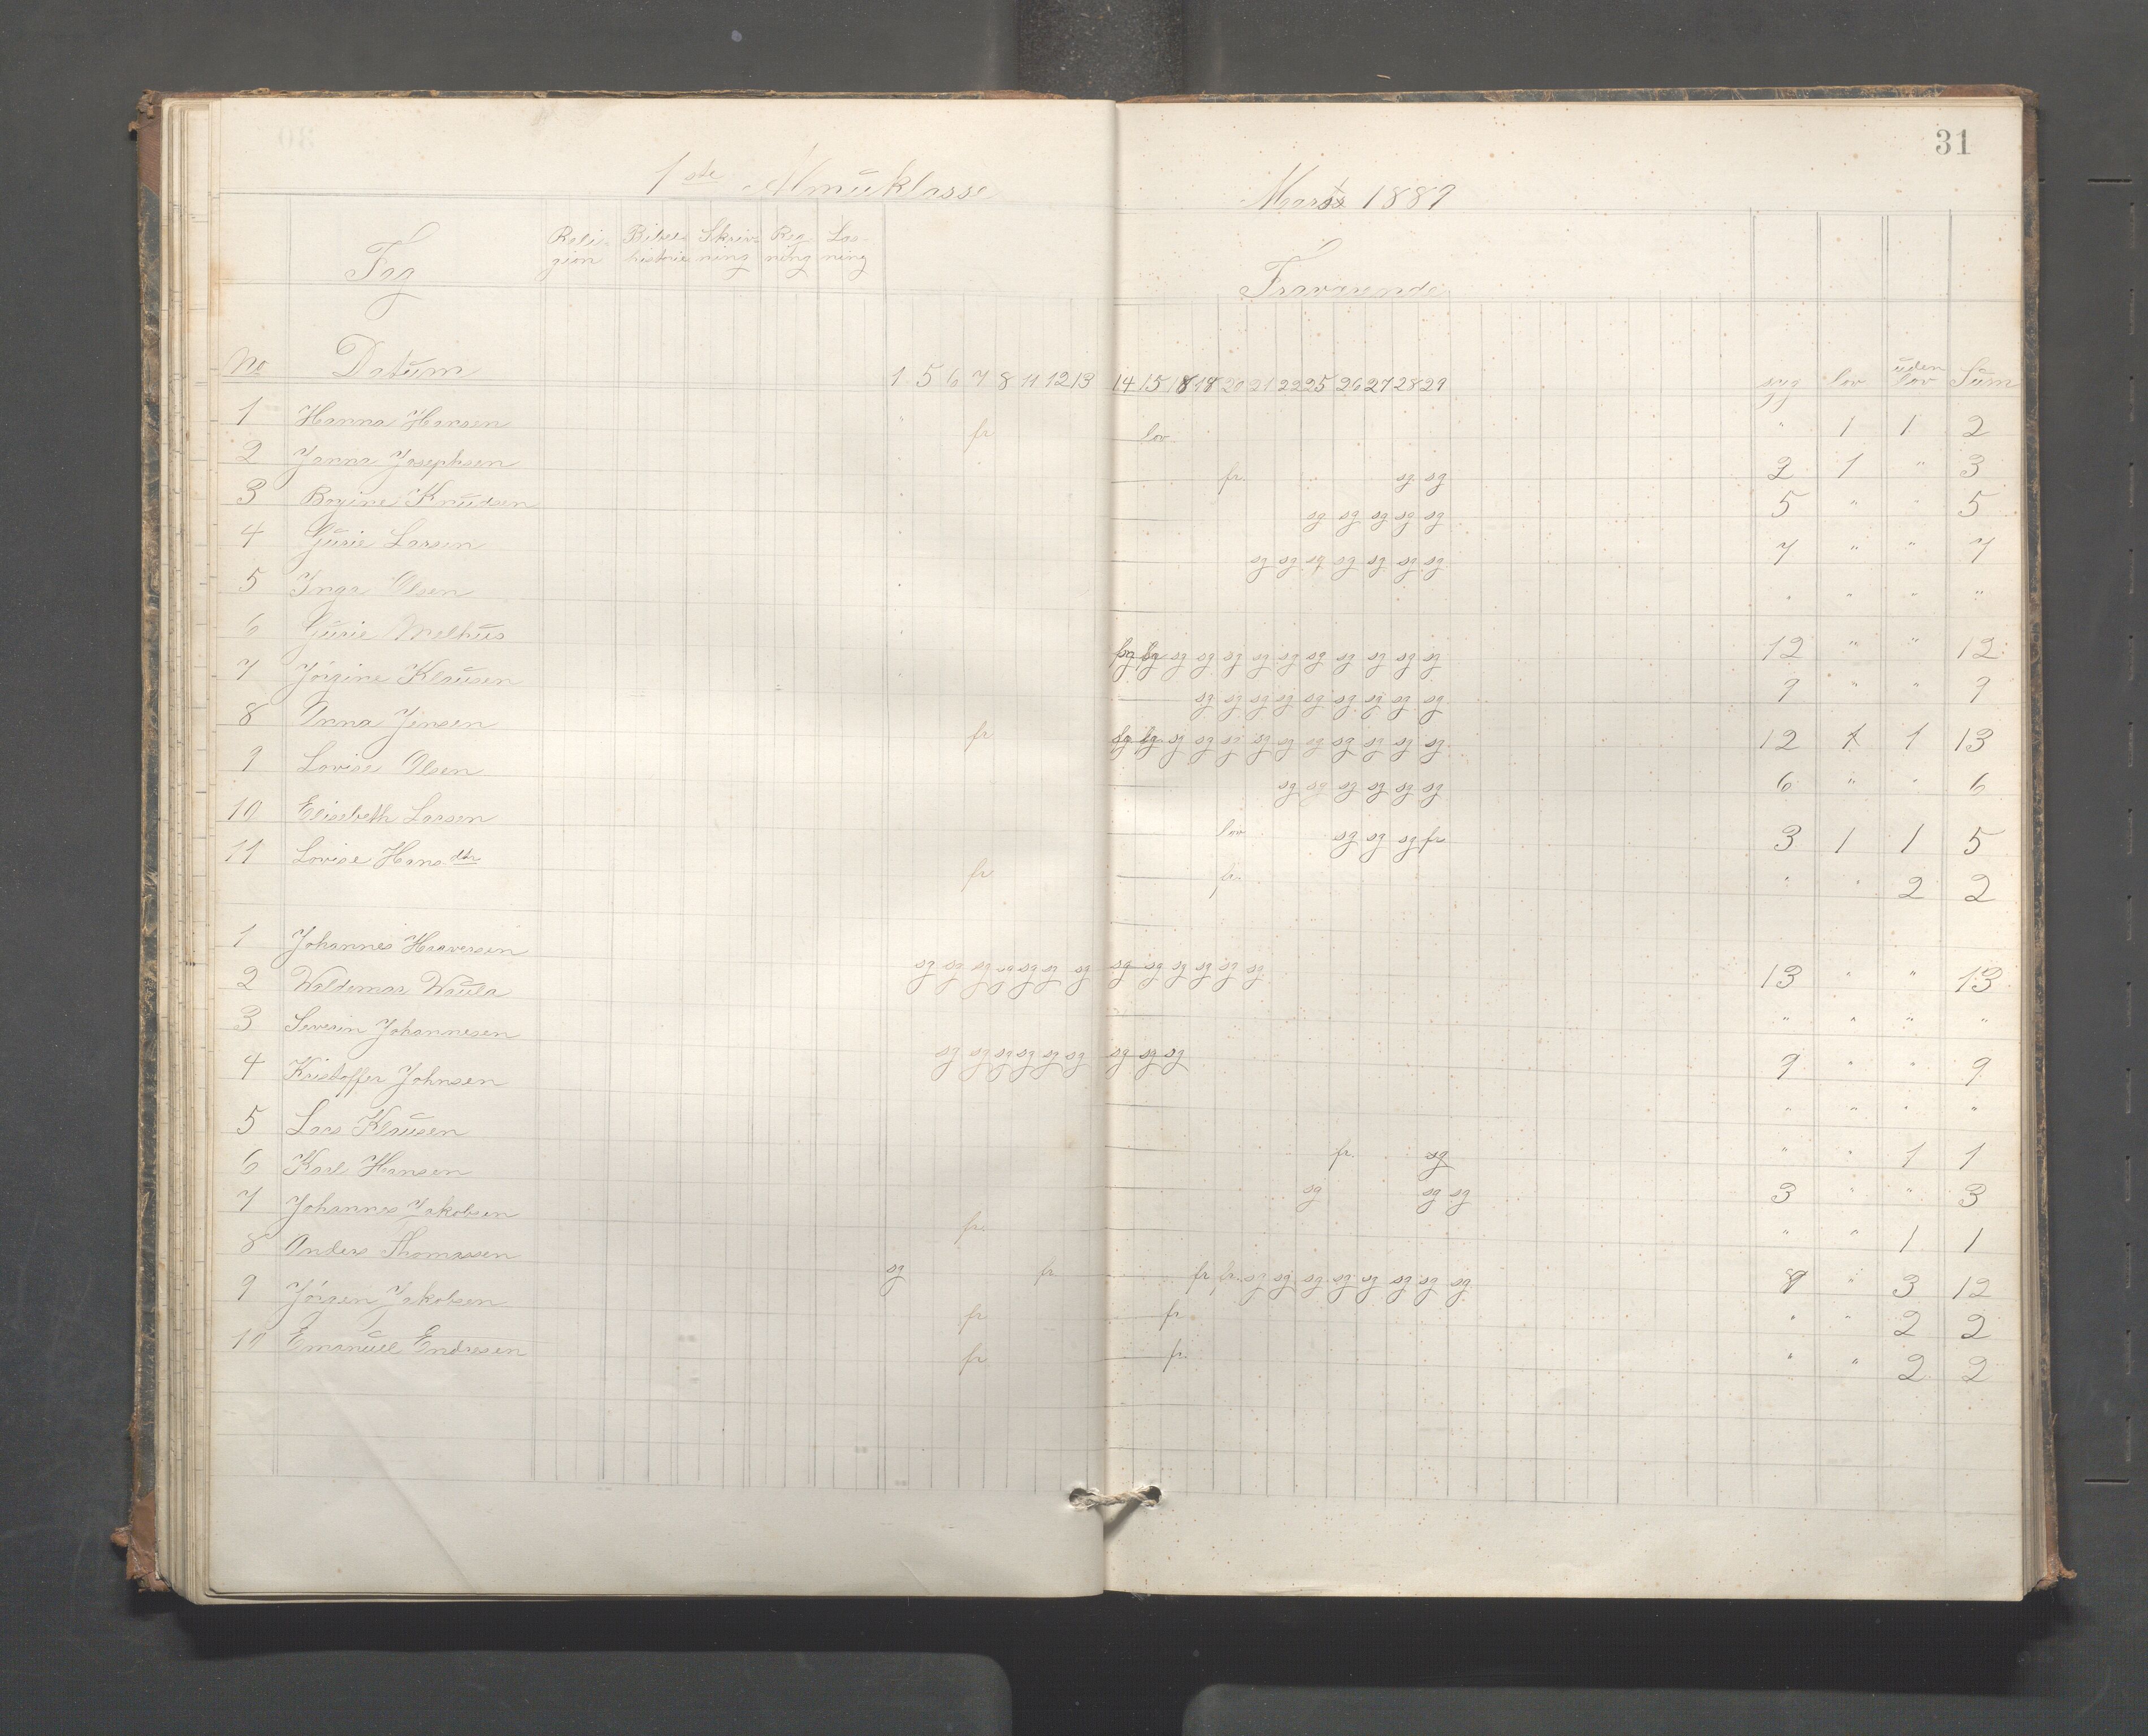 31
1ste Almuklasse Marts 1889
Fag Reli- gion Bibel- historie Skriv- ning Reg- ning Læs- ning Fraværende
No Datum 1 5 6 7 8 11 12 13 14 15 18 19 20 21 22 25 26 27 28 29 syg lov uden lov Sum
1 Hanna Hansen fr lov " 1 1 2
2 Janna Josephsen fr. sg sg 2 1 " 3
3 Bogine Knudsen sg sg sg sg sg 5 " " 5
4 Gusie Larsen sg sg sg sg sg sg sg 7 " " 7
5 Inga Olsen " " " "
6 Gusie Melhus sg sg sg sg sg sg sg sg sg sg sg sg 12 " " 12
7 Jörgine Klausen sg sg sg sg sg sg sg sg sg 9 " " 9
8 Anna Jensen fr sg sg sg sg sg sg sg sg sg sg sg sg 12 1 13
9 Lovise Olsen sg sg sg sg sg sg 6 " " 6
10 Elisebeth Larsen lov sg sg sg fr 3 1 1 5
11 Lovise Hans dtr fr fr. " " 2 2
1 Johannes Haaversen sg sg sg sg sg sg sg sg sg sg sg sg sg 13 " " 13
2 Waldemar Waula " " " "
3 Severin Johannesen sg sg sg sg sg sg sg sg sg 9 " " 9
4 Kristoffer Johnsen " " " "
5 Lars Klausen fr. sg " " 1 1
6 Karl Hansen sg sg sg 3 " " 3
7 Johannes Jakobsen fr. " " 1 1
8 Anders Thomassen sg fr fr fr. sg sg sg sg sg sg sg sg 9 " 3 12
9 Jörgen Jakobsen fr fr " " 2 2
10 Emanuel Endresen fr fr. " " 2 2